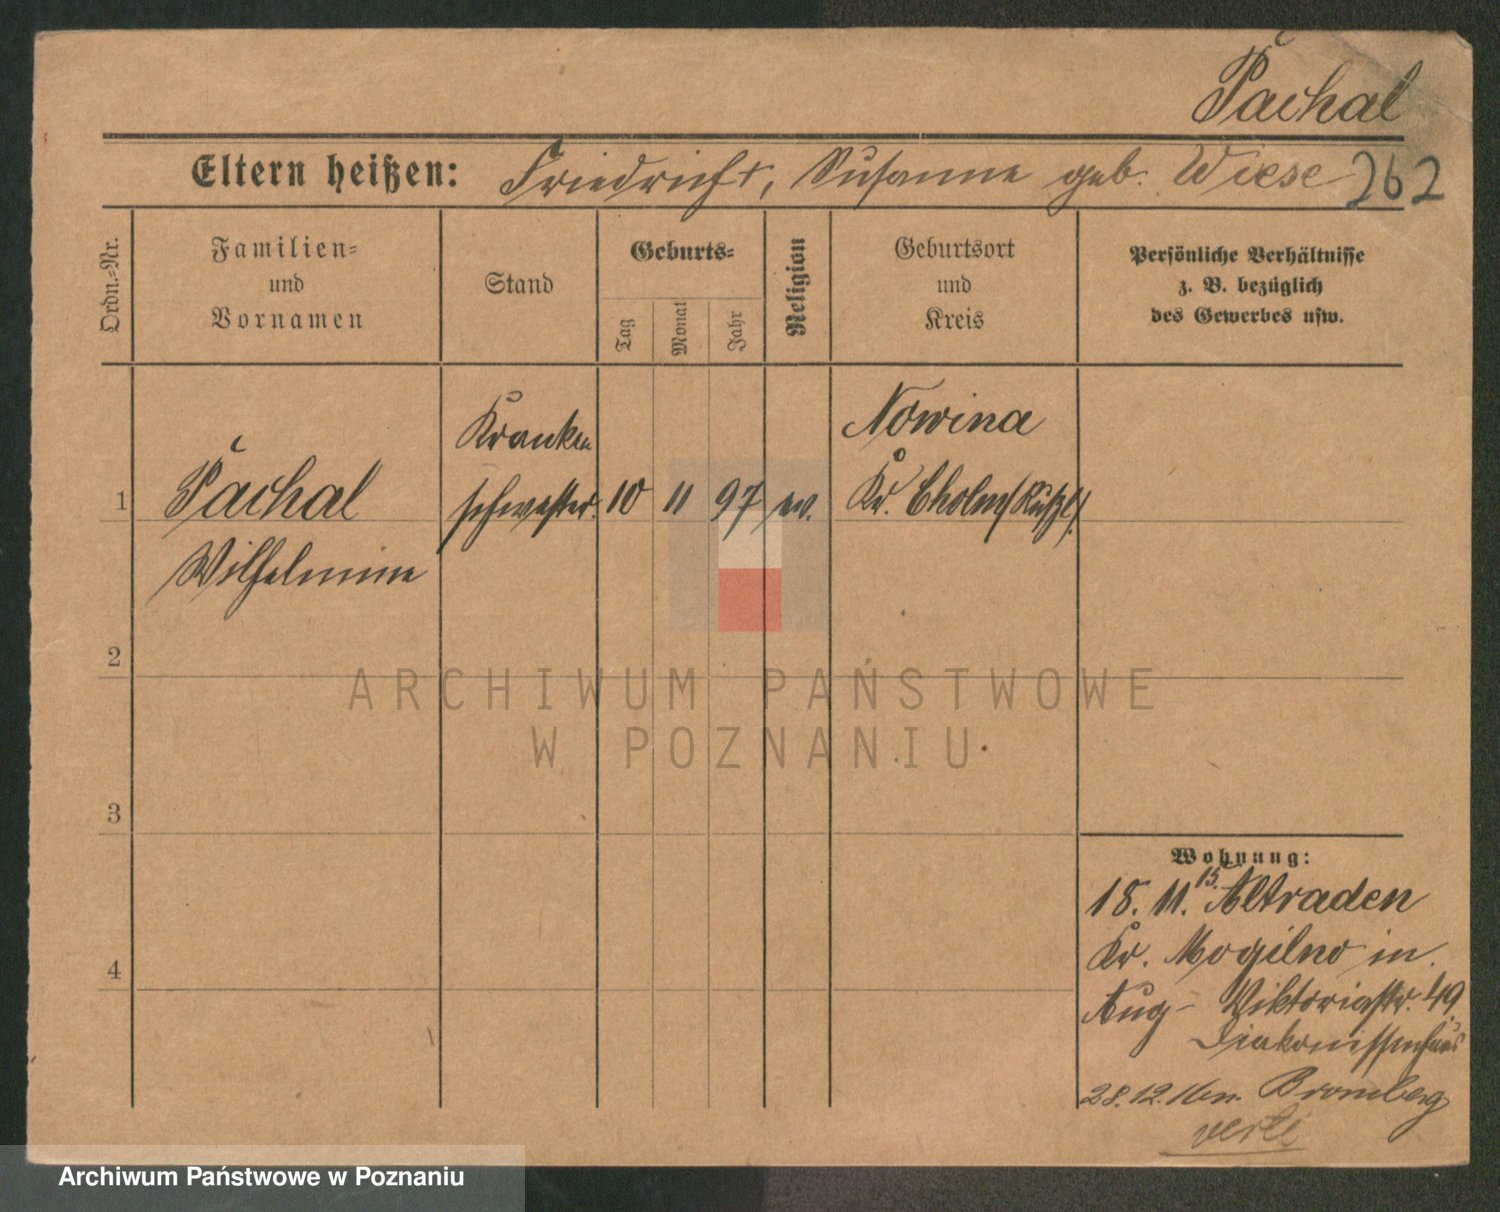 Pachal
Eltern heißen: Friedrich, Susanne geb. Wiese 262
Ordn.=Nr.
Familien=
und
Vornamen
Stand
Geburts=
Tag
Monat
Jahr
Religion
Geburtsort
und
Kreis
Persönliche Verhältnisse
z. B. bezüglich
des Gewerbes usw.
1
Pachal
Wilhelmine
Kranken
schwester.
10
11
97
ev.
Nowina
Kr. Cholm (Rußl.)
2
3
4
Wohnung:
18. 11. 15. Altraden
Kr. Mogilno in.
Aug- Viktoriastr. 49
Diakonissenhaus
28.12.16 n. Bromberg
verte
ARCHIWUM PAŃSTWOWE
W POZNANIU
Archiwum Państwowe w Poznaniu